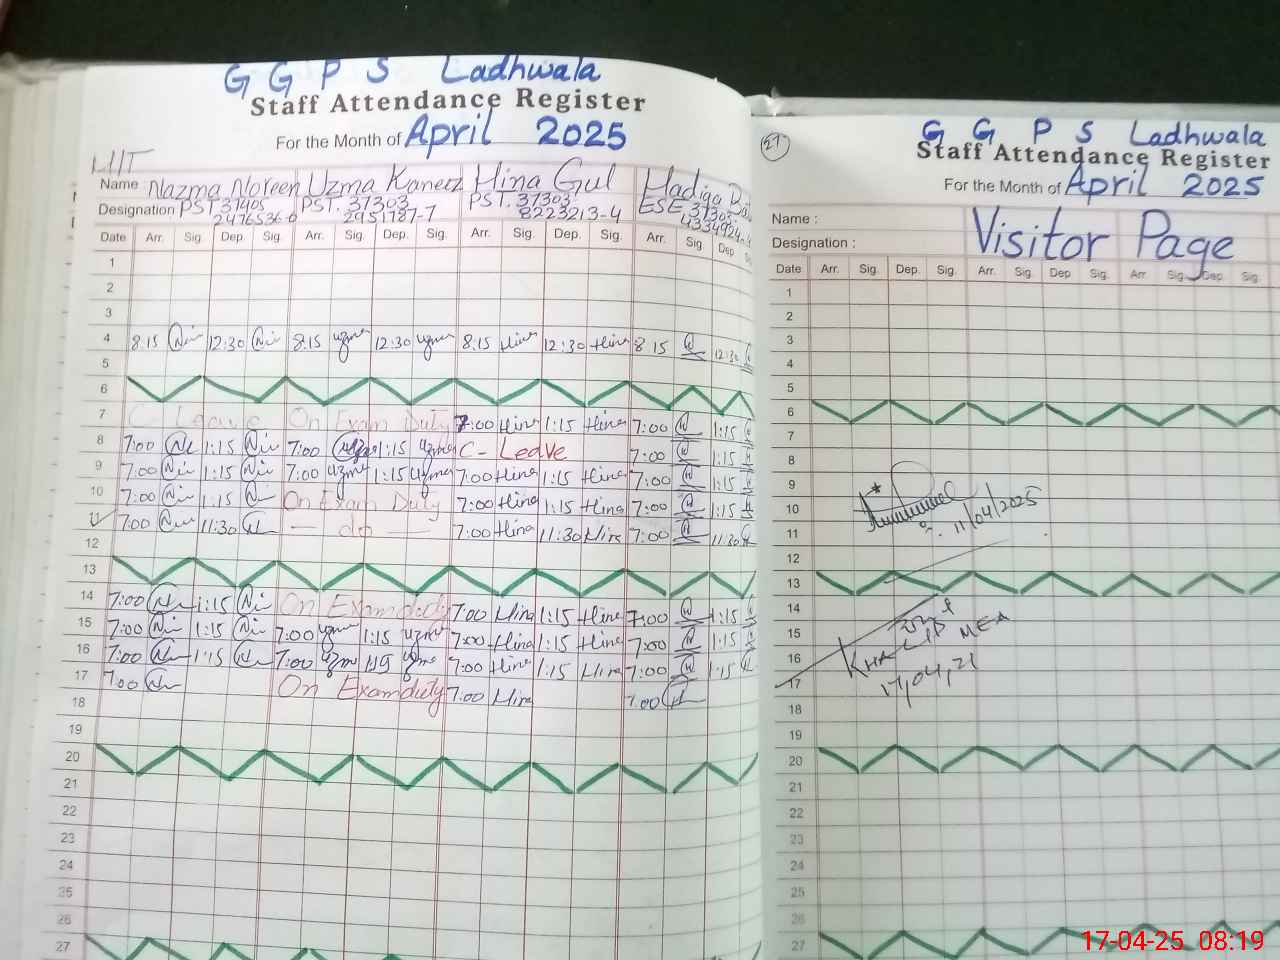 G G P S Ladhwala
Staff Attendance Register
For the Month of April 2025
Name Nazma Noreen Uzma Kaneez Hina Gul Hadiqa
Designation PST 37405 PST. 37303 PST. 37303 ESE 37303
2476536-0 2951787-7 8223213-4 4334924
Date Arr. Sig. Dep. Sig. Arr. Sig. Dep. Sig. Arr. Sig. Dep. Sig. Arr. Sig. Dep
1
2
3
4 8:15 12:30 8:15 uzma 12:30 uzma 8:15 Hina 12:30 Hina 8:15 12:30
5
6
7 C Leave On Exam Duty 7:00 Hina 1:15 Hina 7:00 1:15
8 7:00 1:15 7:00 uzma 1:15 uzma C- Leave 7:00 1:15
9 7:00 1:15 7:00 uzma 1:15 uzma 7:00 Hina 1:15 Hina 7:00 1:15
10 7:00 1:15 On Exam Duty 7:00 Hina 1:15 Hina 7:00 1:15
11 7:00 11:30 — do — 7:00 Hina 11:30 Hina 7:00 11:30
12
13
14 7:00 1:15 On Exam duty 7:00 Hina 1:15 Hina 7:00 1:15
15 7:00 1:15 7:00 uzma 1:15 uzma 7:00 Hina 1:15 Hina 7:00 1:15
16 7:00 1:15 7:00 uzma 1:15 uzma 7:00 Hina 1:15 Hina 7:00 1:15
17 7:00 On Exam duty 7:00 Hina 7:00
18
19
20
21
22
23
24
25
26
27
27
G G P S Ladhwala
Staff Attendance Register
For the Month of April 2025
Name :
Designation :
Visitor Page
Date Arr. Sig. Dep. Sig. Arr. Sig. Dep Sig. Arr Sig. Dep. Sig.
1
2
3
4
5
6
7
8
9
10
11 11/04/2025
12
13
14
15 MEA
16 KHALID
17 17,04,21
18
19
20
21
22
23
24
25
26
27
17-04-25 08:19